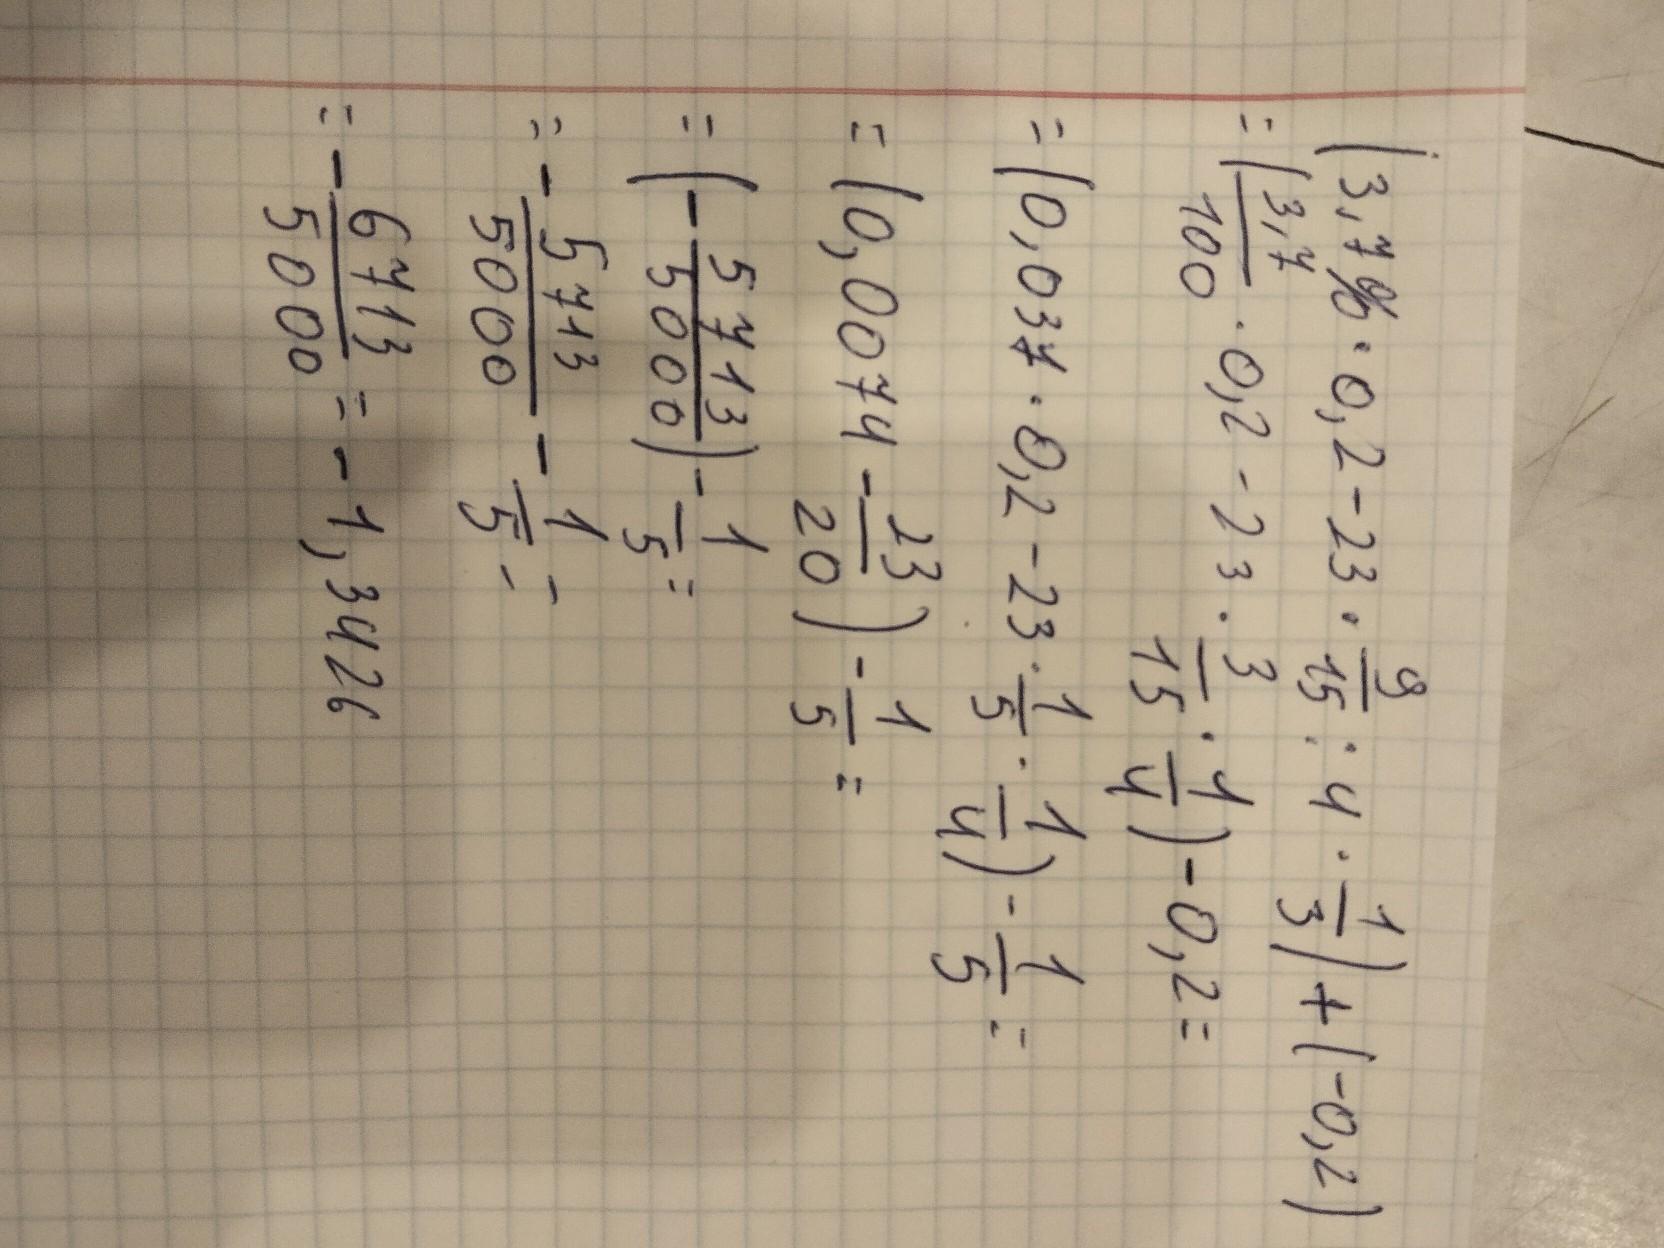 (3,7% · 0,2 - 23 · 9/15 : 4 · 1/3) + (-0,2)
= (3,7/100 · 0,2 - 23 · 3/15 · 1/4) - 0,2 =
= (0,037 · 0,2 - 23 · 1/5 · 1/4) - 1/5 =
= (0,0074 - 23/20) - 1/5 =
= (- 5713/5000) - 1/5 =
= - 5713/5000 - 1/5 =
= - 6713/5000 = - 1,3426